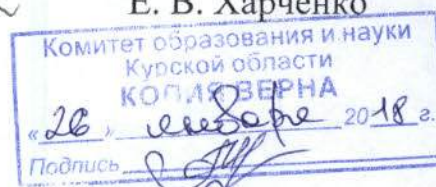 Е. В. Харченко
Комитет образования и науки
Курской области
КОПИЯ ВЕРНА
«26» января 2018 г.
Подпись